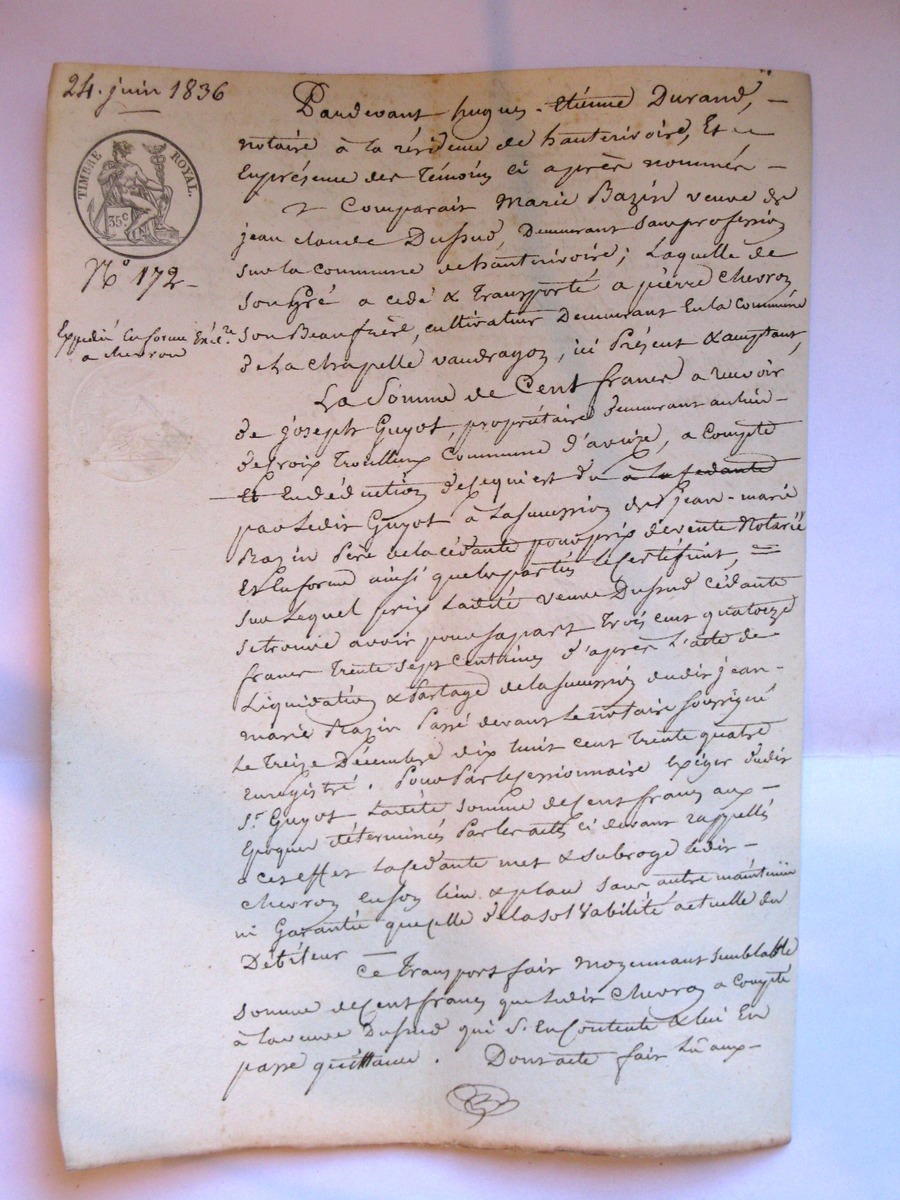 24. juin 1836
TIMBRE ROYAL.
35 c
N° 172
Expédié en forme Exéc.re
a chevron
Pardevant hugues - Etiénne Durand,
notaire à la résidence de hauterivoire, Et
En présence des Témoins ci après nommés
Comparait Marie Bazin veuve de
jean claude Dussud, Demeurant sans profession
sur la commune de hauterivoire; Laquelle de
son Gré a cédé & Transporté a pierre Chevron
son Beaufrère, cultivateur Demeurant En la Commune
de La Chapelle vaudragon, ici Présent & acceptant,
La Somme de Cent francs a recevoir
de joseph Guyot, propriétaire demeurant au lieu
de Croix Trouilleux Commune d'aveize, a Compte
Et En déduction de ce qui est du à la cedante
par Ledit Guyot à La succession de jean-marie
Bazin Père de la cédante pour prix de vente Notariée
Et En forme ainsi que les parties le Certifient,
sur Lequel prix Ladité veuve Dussud cédante
se trouve avoir pour sa part Trois cent quatorze
francs Trente sept Centimes d'après L'acte de
Liquidation & Partage de la succession dudit jean-
marie Bazin Passé devant Le notaire soussigné
Le Treize Décembre dix huit cent Trente quatre
Enregistré. Pour Par le cessionnaire Exiger dudit
Sr Guyot Ladité somme de Cent francs aux
Epoques déterminés Par les actes ci devant rappellés
a cet effet La cedante met & subroge Ledit
Chevron En son lieu & place sans autre maintenue
ni Garantié que celle de la solvabilité actuelle du
Débiteur
Ce Transport fait moyennant semblable
somme de Cent francs que Ledit Chevron a Compté
à la veuve Dussud qui s'En Contente & lui En
passe quittance. Dont acte fait Lu aux